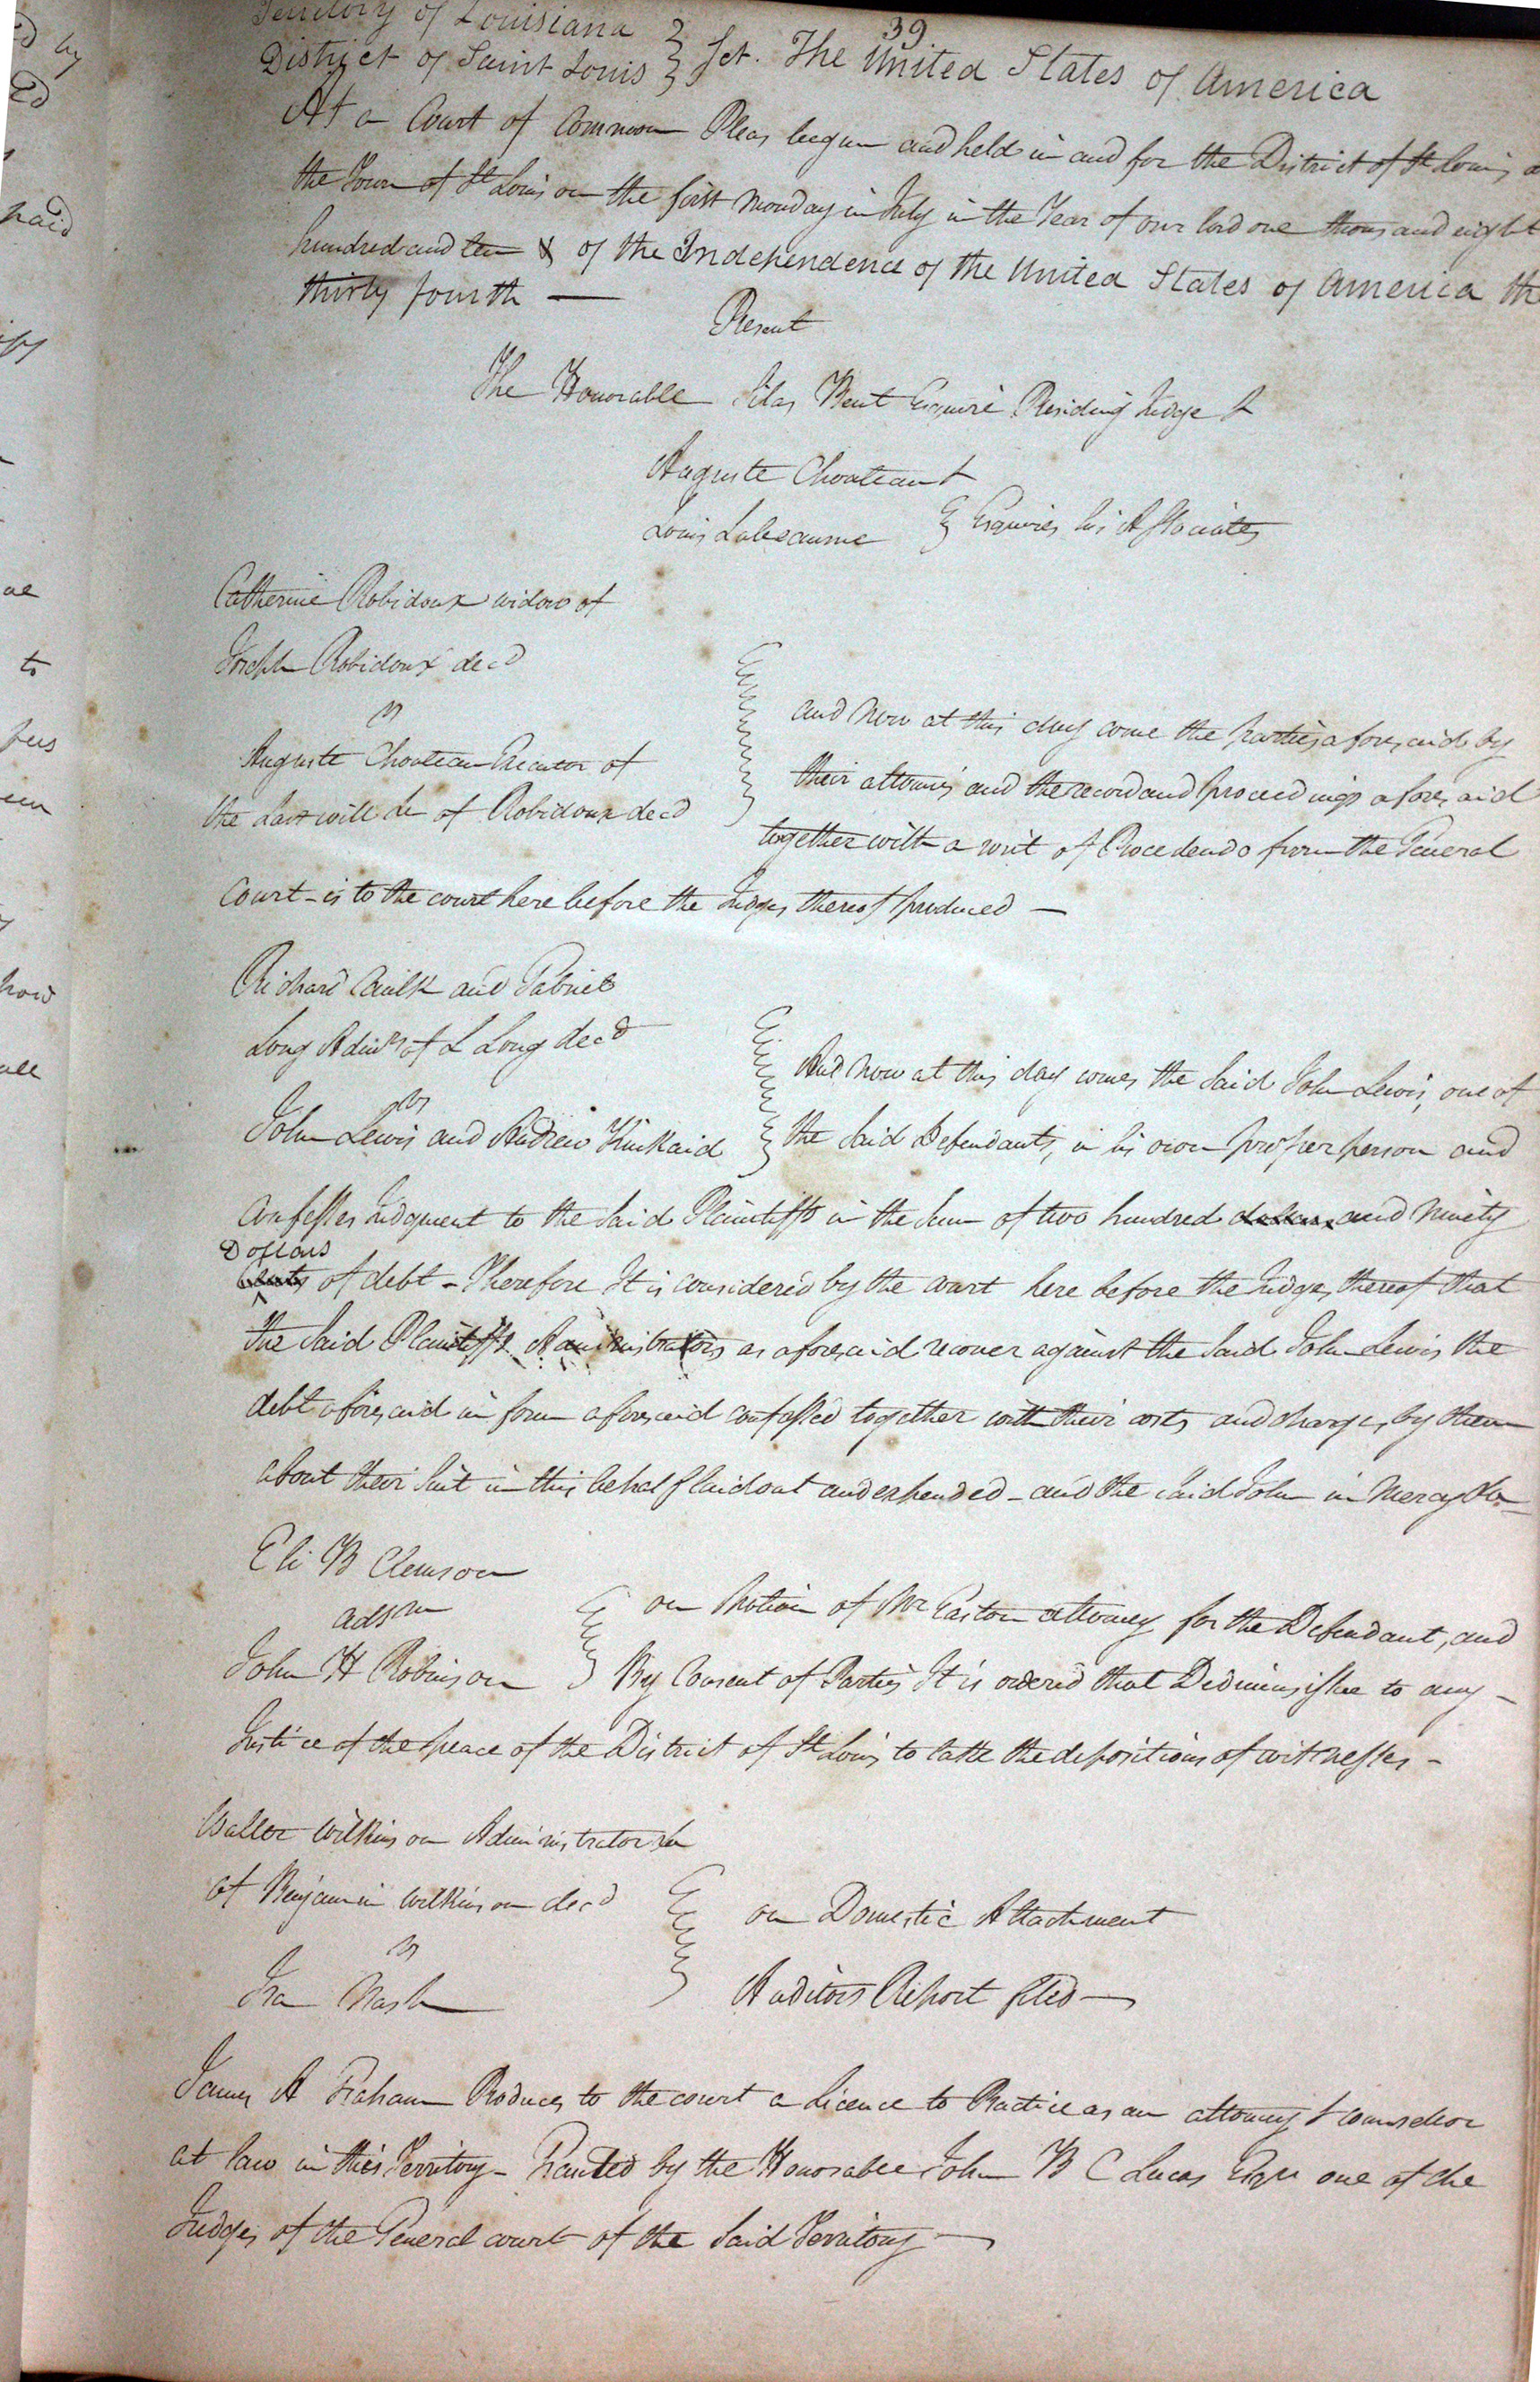 39
Territory of Louisiana
District of Saint Louis } Sct. The United States of America
At a Court of Common Pleas begun and held in and for the District of St Louis a
the Town of St Louis on the first Monday in July in the Year of our lord one thousand eight
hundred and ten & of the Independence of the United States of America th
thirty fourth —
Present
The Honorable Silas Bent Esquire Presiding Judge &
Auguste Chouteau &
Louis Labeaume } Esquires his Associates
Catherine Robidoux widow of
Joseph Robidoux decd
vs
Auguste Chouteau Executor of
the Last will &c of Robidoux decd
and now at this day come the parties aforesaid by
their attornies and the record and proceedings aforesaid
together with a writ of Procedendo from the General
Court - is to the court here before the Judges thereof produced —
Richard Caulk and Gabriel
Long Admrs of L Long decd
vs
John Lewis and Andrew Kinkaid
And now at this day comes the Said John Lewis, one of
the Said Defendants, in his own proper person and
Confesses Judgment to the Said Plaintiffs in the Sum of two hundred dollars and Ninety
Dollars
Cents of debt - Therefore It is considered by the court here before the Judges thereof that
the Said Plaintiffs Administrators as aforesaid recover against the Said John Lewis the
debt aforesaid in form aforesaid confessed together with their costs and charges, by them
about their Suit in this behalf laid out and expended - and the said John in Mercy &c -
Eli B Clemson
adsm
John H Robinson
on Motion of Mr Easton attorney for the Defendant, and
By Consent of Parties It is ordered that Dedimus issue to any -
Justice of the peace of the District of St Louis to take the depositions of witnesses -
Walter Wilkinson Administrator &c
of Benjamin Wilkinson decd
vs
Ira Nash
on Domestic Attachment
Auditors Report filed —
James A Graham Produces to the court a Licence to Practice as an attorney & counsellor
at law in this Territory - Granted by the Honorable John B C Lucas Esqr one of the
Judges of the General court of the Said Territory —